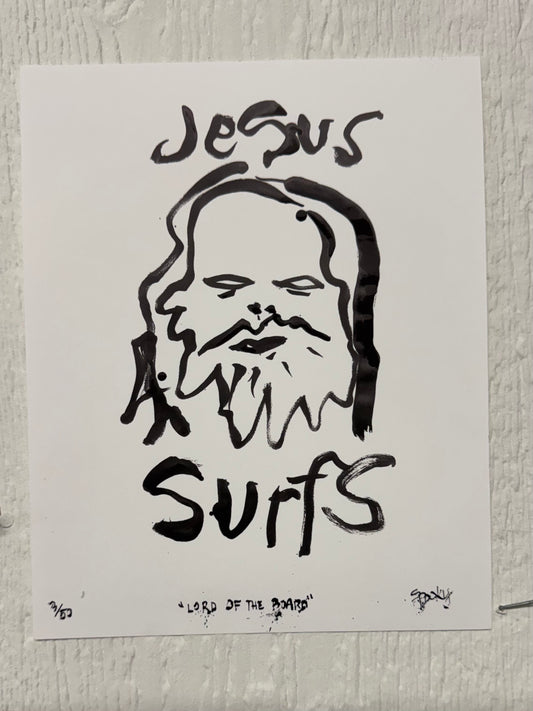 Jesus
Surfs
3/50 "LORD OF THE BOARD" SPOOKY